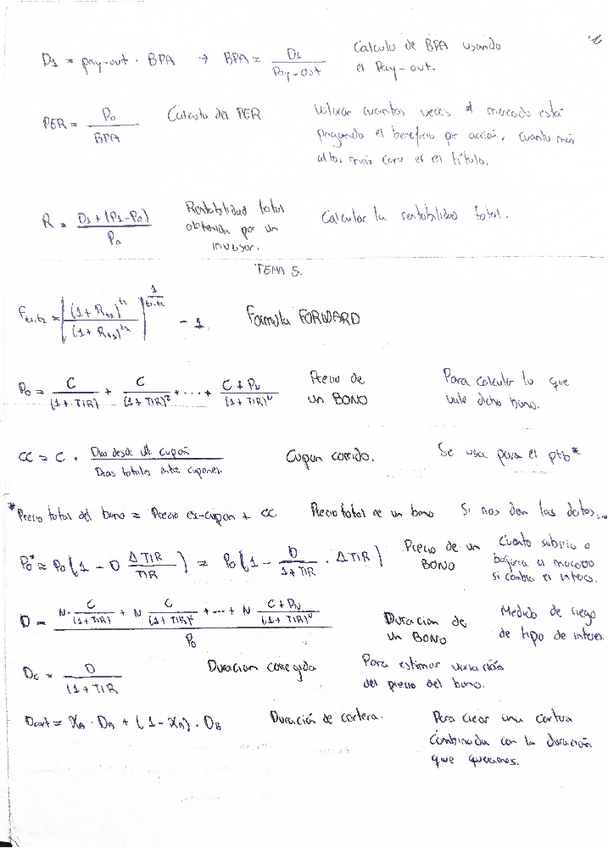 D₁ = pay-out · BPA → BPA = D₁ / Pay-out Calculo de BPA usando el Pay-out.
PER = P₀ / BPA Calculo del PER Valorar cuantas veces el mercado está
pagando el beneficio por acción, cuanto más
alto, más caro es el título.
R = D₁ + (P₁-P₀) / P₀ Rentabilidad total obtenida por un inversor. Calcular la rentabilidad total.
TEMA 5.
Ft₁,t₂ = [ (1 + R )^t₂ / (1 + R )^t₁ ]^(1 / t₂-t₁) - 1 Formula FORWARD
P₀ = C / (1 + TIR) + C / (1 + TIR)² + ... + C + Pₙ / (1 + TIR)ᴺ Precio de un BONO Para calcular lo que vale dicho bono.
CC = C · Dias desde ult. cupón / Dias totales entre cupones. Cupon corrido. Se usa para el ptb*
*Precio total del bono = Precio ex-cupon + CC Precio total de un bono Si nos dan los datos...
P₀* ≈ P₀ (1 - D ΔTIR / TIR) = P₀ (1 - D / 1 + TIR · ΔTIR) Precio de un BONO Cuanto subiria o
bajaria el mercado
si cambia el interes.
D = N· C / (1 + TIR) + N C / (1 + TIR)² + ... + N C + Pₙ / (1 + TIR)ᴺ / P₀ Duracion de un BONO Medida de riesgo de tipo de interes.
Dc = D / (1 + TIR Duracion corregida Para estimar variación del precio del bono.
Dcart = Xₐ · Dₐ + (1 - Xₐ) · D_B Duración de cartera. Para crear una cartera
combinada con la duración
que queramos.